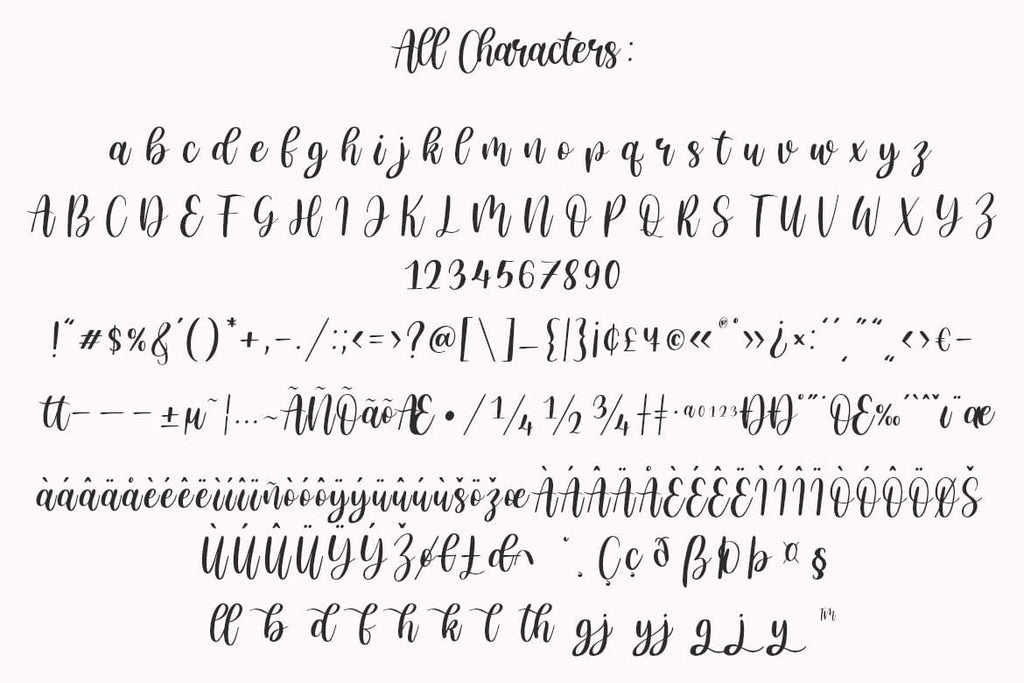 All Characters:
a b c d e f g h i j k l m n o p q r s t u v w x y z
A B C D E F G H I J K L M N O P Q R S T U V W X Y Z
1234567890
!"#$%&'()*+,-./:;<=>?@[\]_{|}¡¢£¥©«®°»¿×:'´¸"“„‹›€−
tt-–—±µ˜¦...~ÃÑÕãõÆ•/¼½¾†‡·ªº¹²³ÐĐ°˝˙ŒE‰´`ˆˇı¨æ
àáâäåèéêëìíîïñòóôÿýüûúùšöžœÀÁÂÄÅÈÉÊËÌÍÎÏÒÓÔÖØŠ
ÙÚÛÜŸÝŽøłŁđ Çç ð ß Þ þ ¤ §
ll b d f h k l th gj yj g j y ™